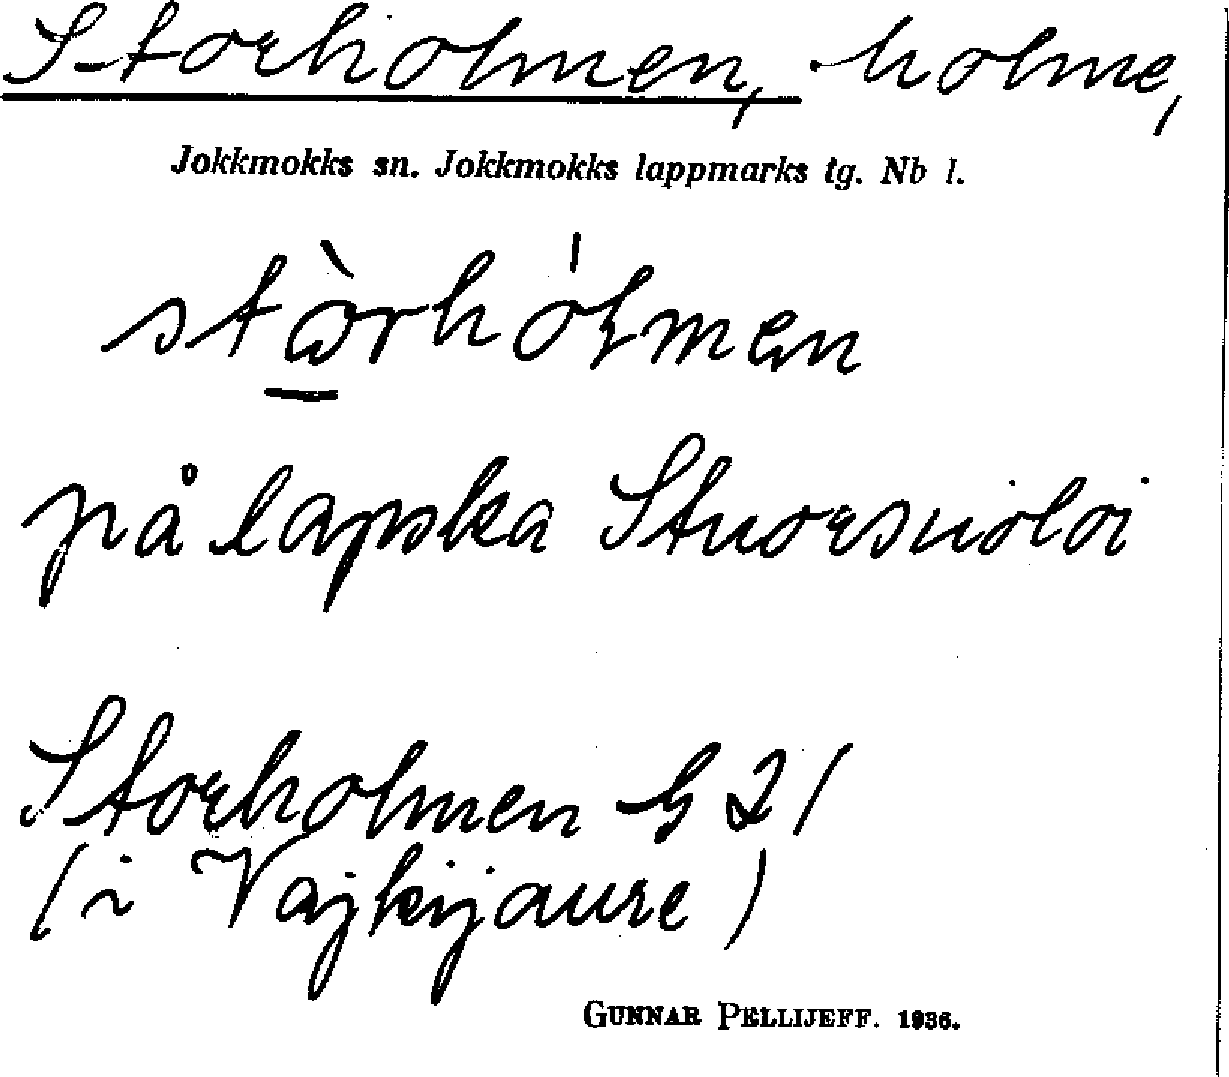 Storholmen, holme,
Jokkmokks sn. Jokkmokks lappmarks tg. Nb l.
stòrhólmen
på lapska Stuorsuoloi
Storholmen G 21
(i Vajkijaure)
GUNNAR PELLIJEFF. 1936.